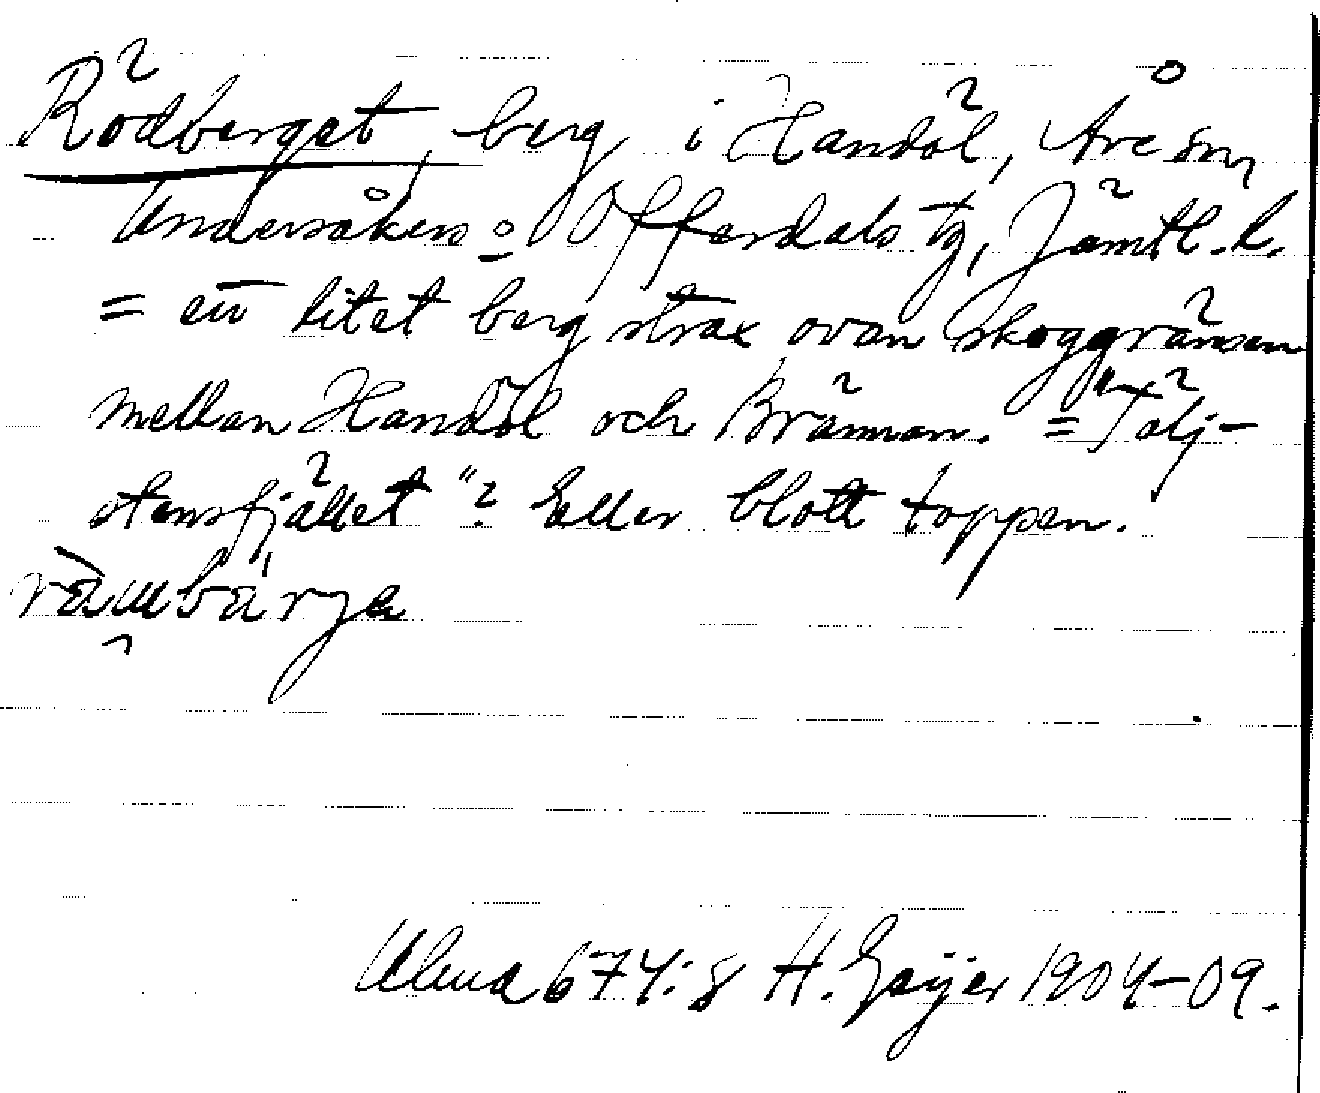 Rödberget, berg i Handöl, Åre sn,
Undersåkers o Offerdals tg, Jämtl. l.
= ett litet berg strax ovan skoggränsen
mellan Handöl och Brännan. = "Tälj-
stensfjället"? Eller blott toppen.
Ulma 674:8 H. Geijer 1904-09.